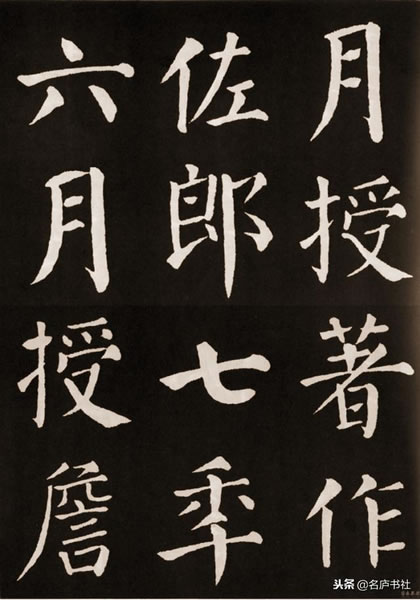 月授著作
佐郎七年
六月授詹
头条@名庐书社